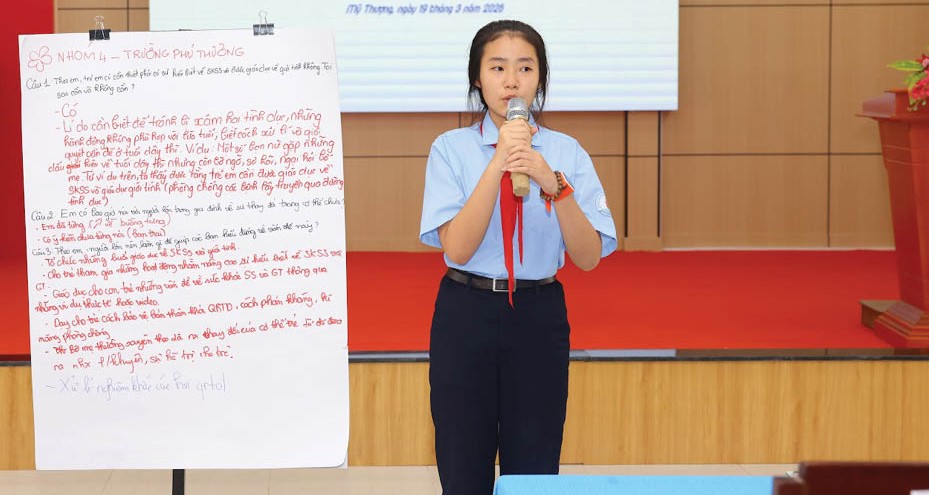 Mỹ Thượng, ngày 19 tháng 3 năm 2026
NHÓM 4 – TRƯỜNG PHÚ THƯỢNG
Câu 1. Theo em, trẻ em có cần thiết phải có sự hiểu biết về SKSS và được giáo dục về giới tính không. Tại
sao cần và không cần?
- Có
- Lí do cần biết để tránh bị xâm hại tình dục, những
hành động không phù hợp với lứa tuổi, biết cách xử lí và giải
quyết vấn đề ở tuổi dậy thì. Ví dụ: Một số bạn nữ gặp những
dấu hiệu về tuổi dậy thì nhưng còn bỡ ngỡ, sợ hãi, ngại hỏi bố
mẹ. Từ ví dụ trên, ta thấy được rằng trẻ em cần được giáo dục về
SKSS và giáo dục giới tính (phòng chống các bệnh lây truyền qua đường
tình dục)
Câu 2. Em có bao giờ nói với người lớn trong gia đình về sự thay đổi trong cơ thể chưa?
- Em đã từng (
- Có ý kiến chưa từng nói (bạn trai)
Câu 3. Theo em, người lớn nên làm gì để giúp các bạn hiểu đúng về vấn đề này?
- Tổ chức những buổi giáo dục về SKSS và giới tính.
- Cho trẻ tham gia những hoạt động nhằm nâng cao sự hiểu biết về SKSS và
GT.
- Giáo dục cho con, trẻ những vấn đề về sức khỏe SS và GT thông qua
những ví dụ thực tế hoặc video.
- Dạy cho trẻ cách bảo vệ bản thân khỏi QRTD, cách phản kháng, kĩ
năng phòng chống
- bố mẹ thường xuyên theo dõi ra thay đổi của cơ thể trẻ từ đó đưa
ra nhx l/khuyên, sự hỗ trợ cho trẻ.
- Xử lí nghiêm khắc các hvi qrtd